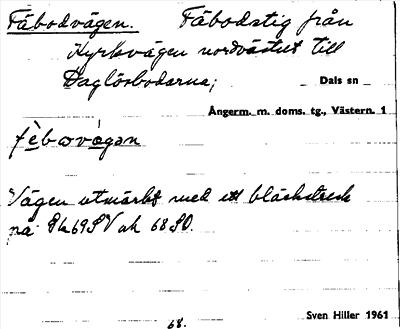 Fäbodvägen. Fäbodstig från
Kyrkvägen nordvästut till
Daglösbodarna;
Dals sn
Ångerm. m. doms. tg., Västern. 1
Vägen utmärkt med ett bläckstreck
på Ek 69 SV och 68 SO.
68.
Sven Hiller 1961